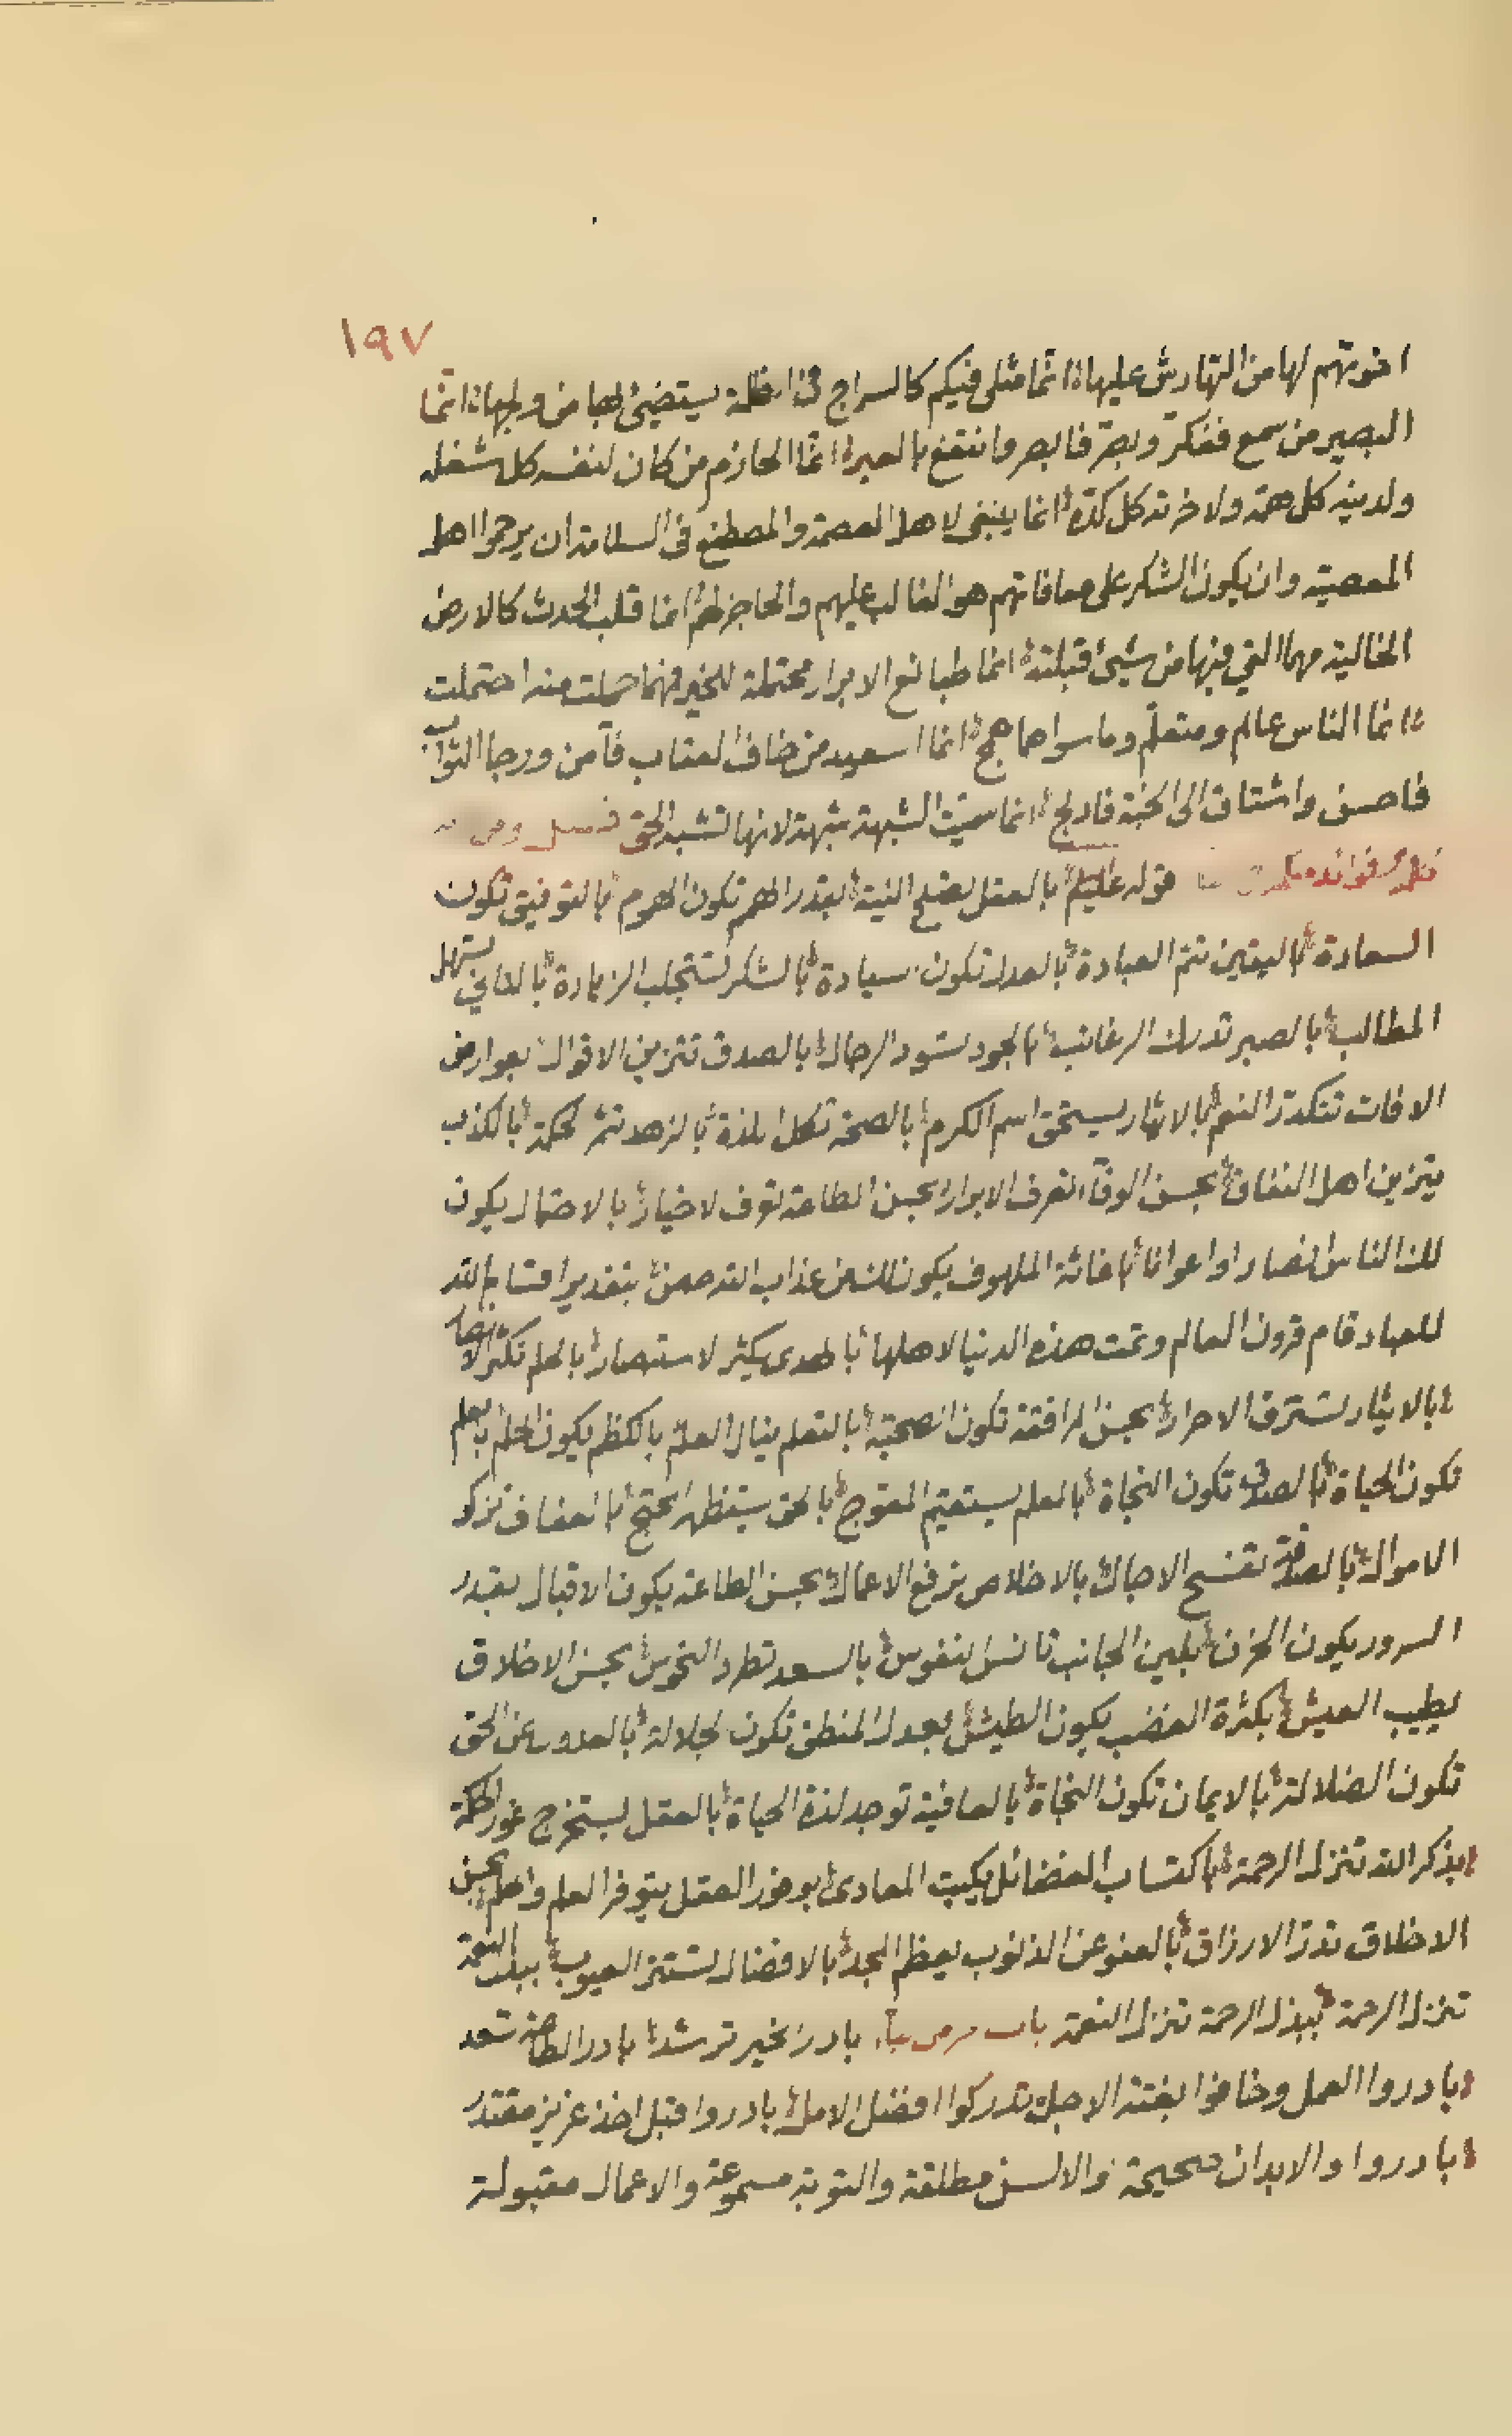 ١٩٧
اخوتهم لها من التهارش عليها انما مثلى فيكم كالسراج فى الظلمة يستضيئ لها من ولجها انما
البصير من سمع ففكر وبصر فابصر وانتفع بالعبر انما الحازم من كان لنفسه كل شغله
ولدينه كل همه ولاخرته كل كده انما ينبغى لاهل العصمة والمصطنع فى السلامة ان يرحموا اهل
المعصية وان يكون الشكر على معافاتهم هو الغالب عليهم والحاجز لهم انما قلب الحدث كالارض
الخالية مهما القي فيها من شيئ قبلته انما طبائع الابرار محتملة للخير فمهما حملت منه احتملت
انما الناس عالم ومتعلم وما سواهما همج انما السعيد من خاف العقاب فآمن ورجا الثواب
فاحسن واشتاق الى الجنة فادلج انما سميت الشبهة شبهة لانها تشبه الحق فصل
قوله عليلم بالعقل يصلح النية بقدر الهمم تكون الهموم بالتوفيق تكون
السعادة باليقين تتم العبادة بالعدل تكون سيادة بالشكر تستجلب الزيادة بالتاني تسهل
المطالب بالصبر تدرك الرغائب بالجود تسود الرجال بالصدق تتزين الاقوال بعوارض
الافات تتكدر النعم بالايثار يستحق اسم الكرم بالصحة تكمل اللذة بالزهد تثمر الحكمة بالكذب
يتزين اهل النفاق بحسن الوفآء تعرف الابرار بحسن الطاعة تعرف الاخيار بالاحتمال يكون
لك الناس انصارا واعوانا باغاثة الملهوف يكون لك من عذاب الله حصن بتقدير اقسام الله
للعباد قام قرون العالم وتمت هذه الدنيا لاهلها بالهدى يكثر الاستبصار بالحلم تكثر الانصار
بالايثار تسترق الاحرار بحسن المرافقة تكون الصحبة بالتعلم ينال العلم بالكظم يكون الحلم بالعلم
تكون الحياة بالصدق تكون النجاة بالعلم يستقيم المعوج بالحق يستظهر المحتج بالعفاف تزكو
الاموال بالصدقة تفسح الاجال بالاخلاص ترفع الاعمال بحسن الطاعة يكون الاقبال بقدر
السرور يكون الحزن بلين الجانب تانس النفوس بالسعد تطرد النحوس بحسن الاخلاق
يطيب العيش بكثرة الغضب يكون الطيش بعدل المنطق تكون الجلالة بالعدول عن الحق
تكون الضلالة بالايمان تكون النجاة بالعافية توجد لذة الحياة بالعقل يستخرج غور الحكمة
بذكر الله تنزل الرحمة باكتساب الفضائل يكبت المعادى بوفور العقل يتوفر العلم والحلم بحسن
الاخلاق تدر الارزاق بالعفو عن الذنوب يعظم المجد بالافضال تستتر العيوب ببذل النعمة
تنزل الرحمة ببذل الرحمة تنزل النعمة باب بادر الخير ترشد بادر الطاعة تسعد
بادروا العمل وخافوا بغتة الاجل تدركوا افضل الامل بادروا قبل اخذ عزيز مقتدر
بادروا والابدان صحيحة والالسن مطلقة والتوبة مسموعة والاعمال مقبولة